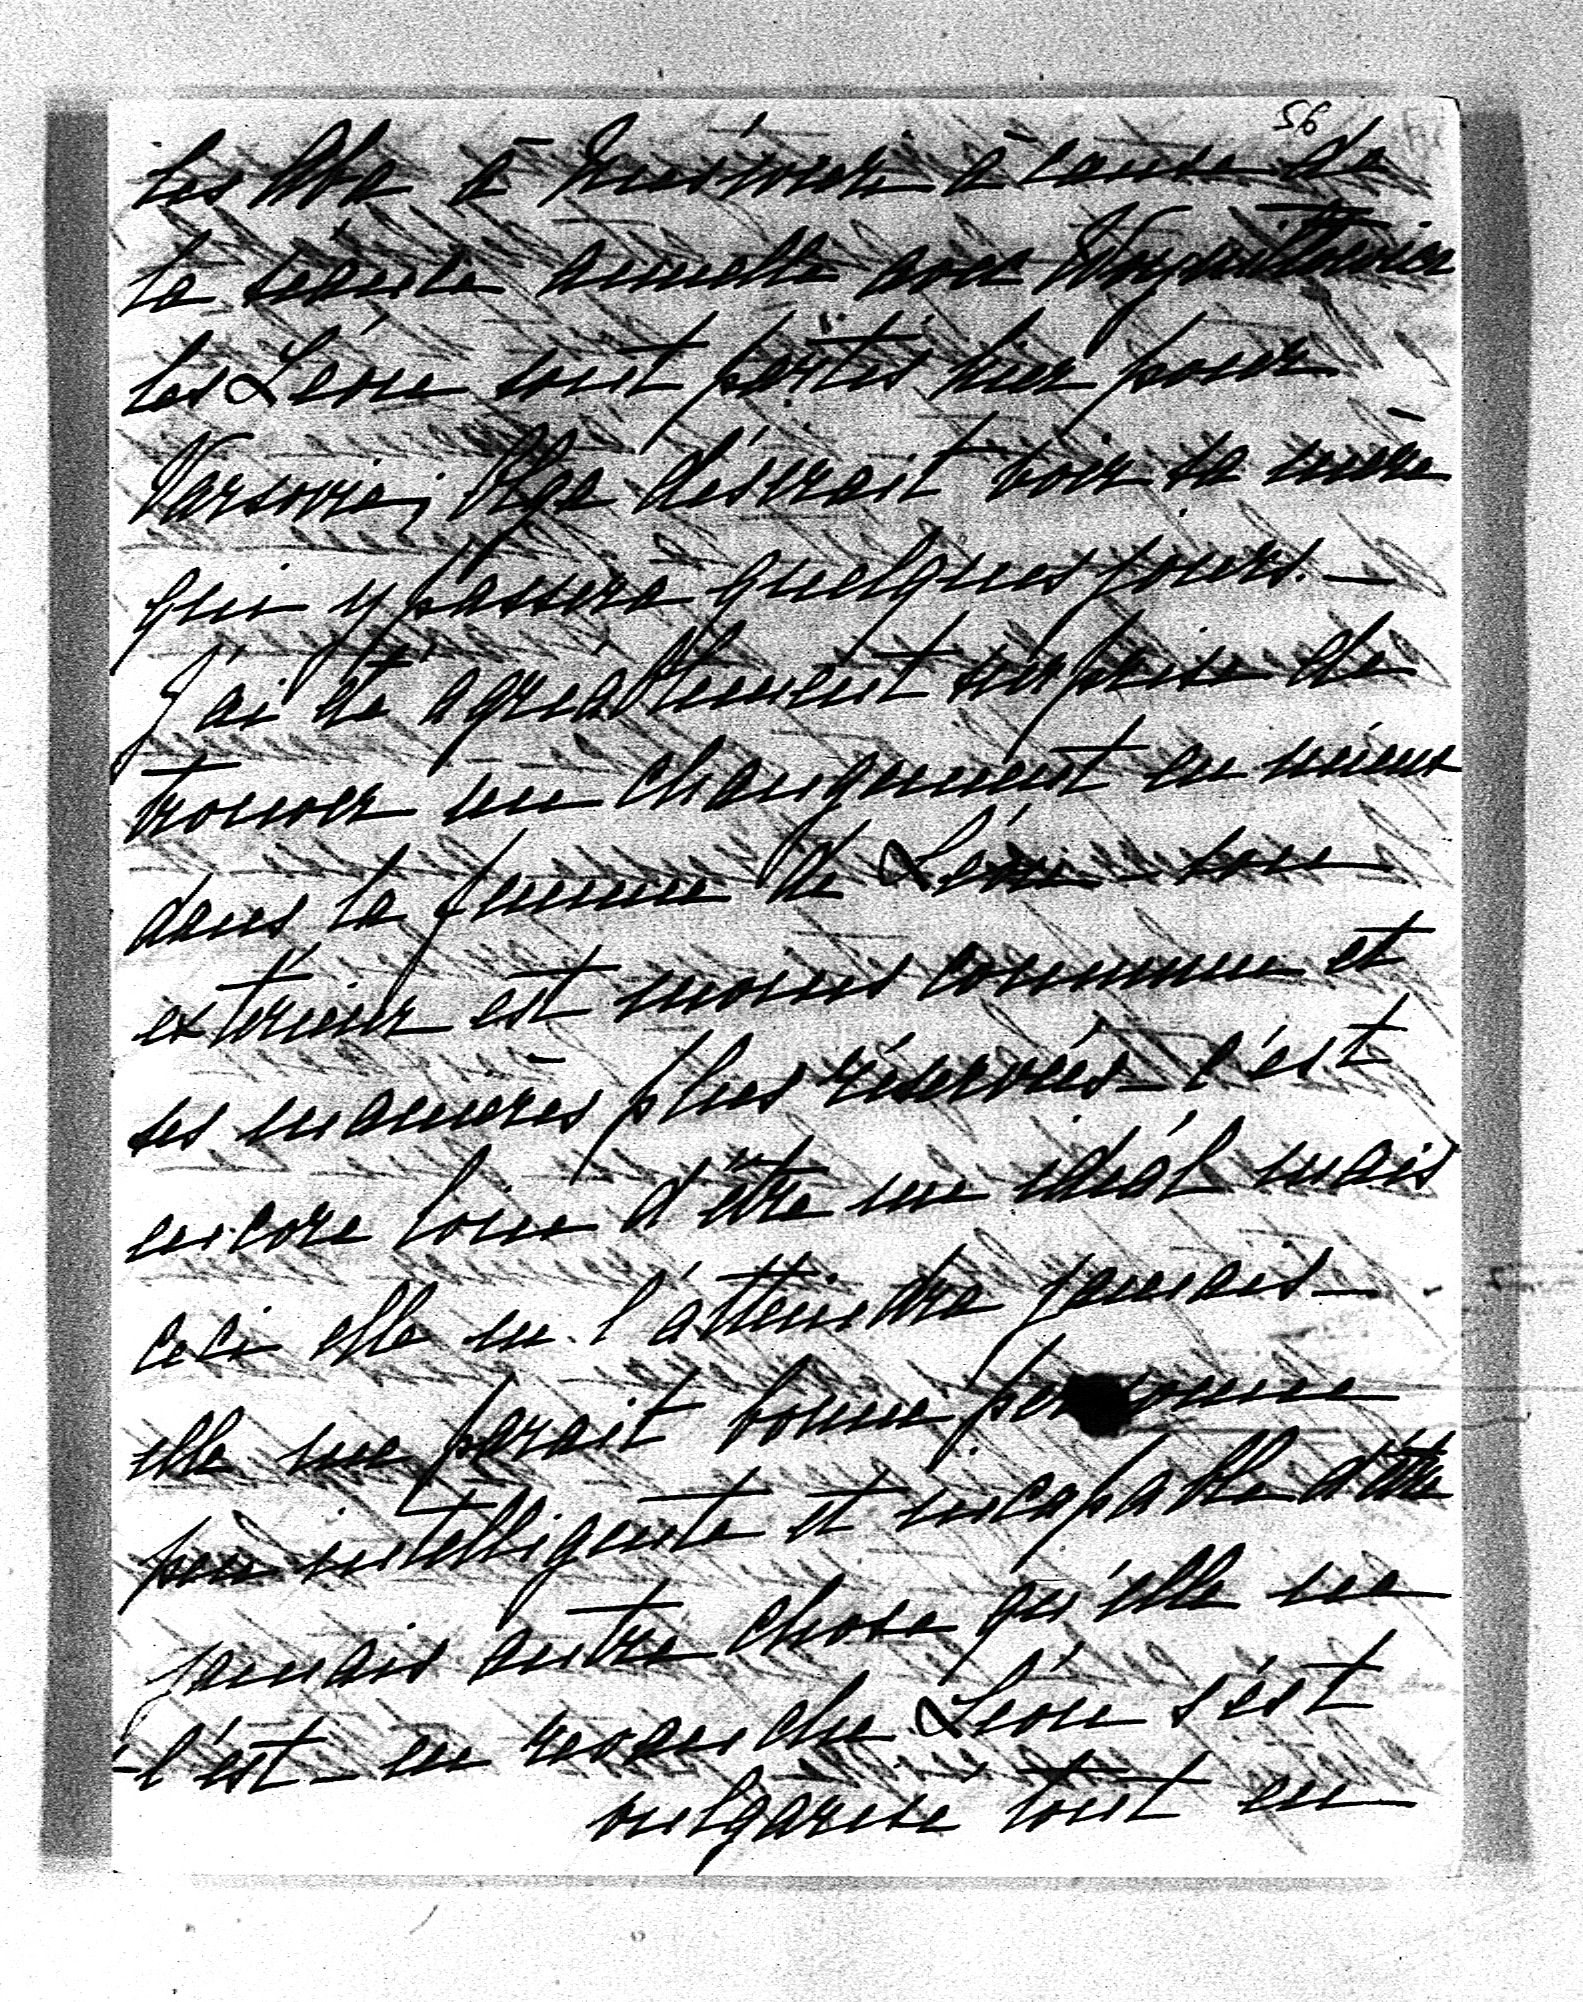 56
les à à cause de
la scène avec
les Léon sont partis hier pour
Varsovie; Olga désirait voir sa mère
qui y passera quelques jours. —
J'ai été agréablement surprise de
trouver un changement en mieux
dans la femme de Léon — son
extérieur est moins commun et
ses manières plus réservées — c'est
encore loin d'être un idéal mais
ceci elle ne l'atteindra jamais —
elle me parait bonne personne
peu intelligente et incapable d'être
jamais autre chose qu'elle ne
l'est — en revanche Léon s'est
vulgarisé tout en